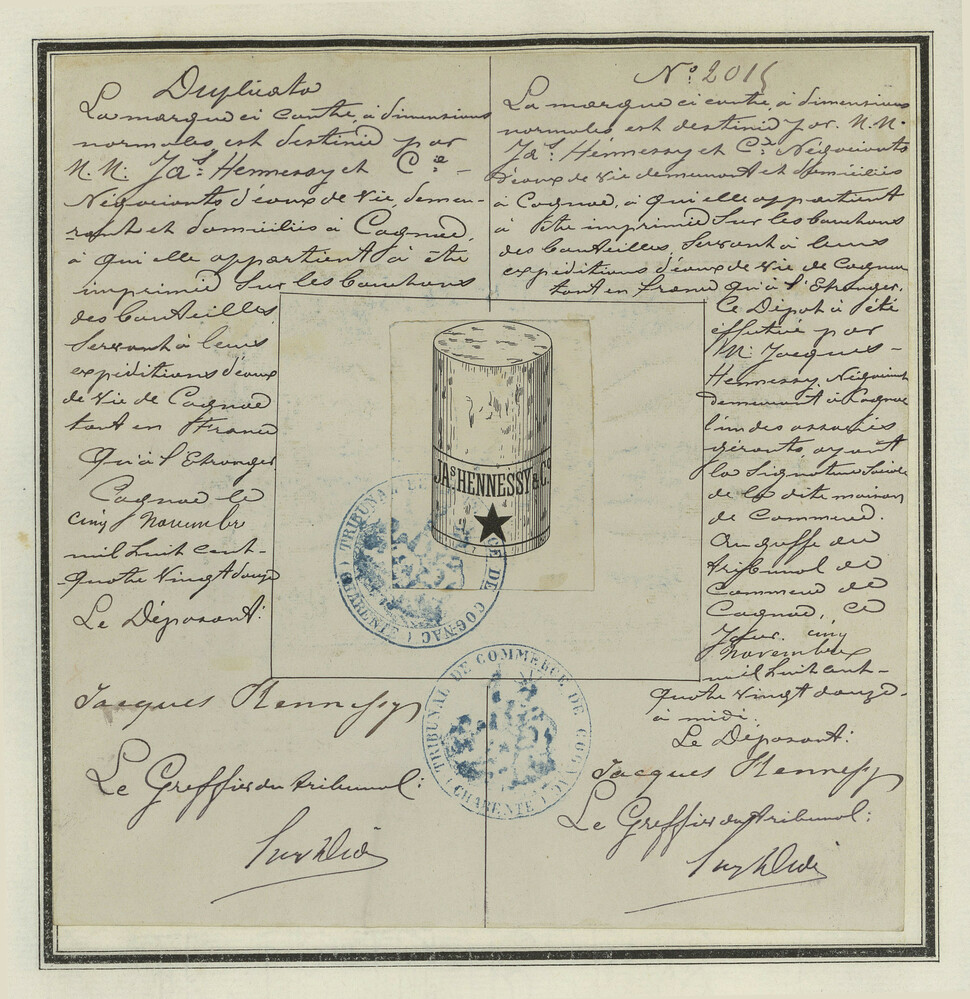 Duplicata
La marque ci contre, à dimensions
normales, est destinée par
M.M. Jas Hennessy et Cie -
Négociants d'eaux de Vie, demeu-
rant et domiciliés à Cognac,
à qui elle appartient à être
imprimée Sur les bouchons
des bouteilles
Servant à leurs
expéditions d'eaux
de Vie de Cognac
tant en France
Qu'à l'Etranger
Cognac le
cinq Novembre
mil huit cent-
quatre Vingt douze
Le Déposant:
Jacques Hennessy
Le Greffier du tribunal:
No 2015
La marque ci contre, à dimensions
normales, est destinée par M.M.
Jas Hennessy et Cie Négociants
d'eaux de Vie demeurant et domiciliés
à Cognac, à qui elle appartient
à être imprimée Sur les bouchons
des bouteilles Servant à leurs
expéditions d'eaux de Vie de Cognac
tant en france Qu'à l'Etranger.
Ce Dépot à été
effectué par
M. Jacques -
Hennessy, Négociant
demeurant à Cognac
l'un des associés
gérants, ayant
la Signature Sociale
de la dite maison
de Commerce.
Au greffe du
tribunal de
Commerce de
Cognac, ce
jour. cinq
novembre
mil huit cent-
quatre Vingt douze-
à midi.
Le Déposant:
Jacques Hennessy
Le Greffier du tribunal:
JAS HENNESSY & Co
TRIBUNAL DE COMMERCE DE COGNAC (CHARENTE)
TRIBUNAL DE COMMERCE DE COGNAC (CHARENTE)